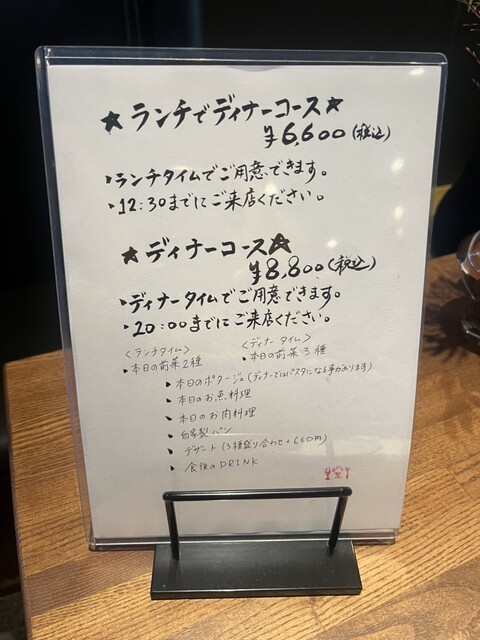 ★ランチでディナーコース★
¥6,600(税込)
・ランチタイムでご用意できます。
・12:30までにご来店ください。
★ディナーコース★
¥8,800(税込)
・ディナータイムでご用意できます。
・20:00までにご来店ください。
<ランチタイム> <ディナータイム>
・本日の前菜2種 ・本日の前菜3種
・本日のポタージュ(ディナーではパスタになる事があります)
・本日のお魚料理
・本日のお肉料理
・自家製パン
・デザート(3種盛り合わせ+660円)
・食後のDRINK